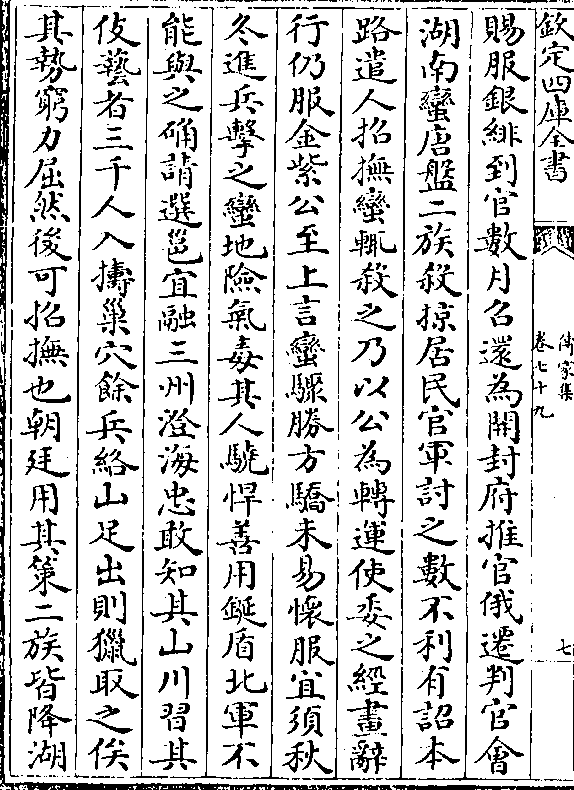 欽定四庫全書
傳家集
卷七十九
七
賜服銀緋到官數月召還為開封府推官俄遷判官㑹
湖南蠻唐盤二族殺掠居民官軍討之數不利有詔本
路遣人招撫蠻輒殺之乃以公為轉運使委之經畫辭
行仍服金紫公至上言蠻驟勝方驕未易懷服宜須秋
冬進兵擊之蠻地險氣毒其人驍悍善用鋋盾北軍不
能與之确請選邕宜融三州澄海忠敢知其山川習其
伎藝者三千人入擣巢穴餘兵絡山足出則獵取之俟
其勢窮力屈然後可招撫也朝廷用其策二族皆降湖